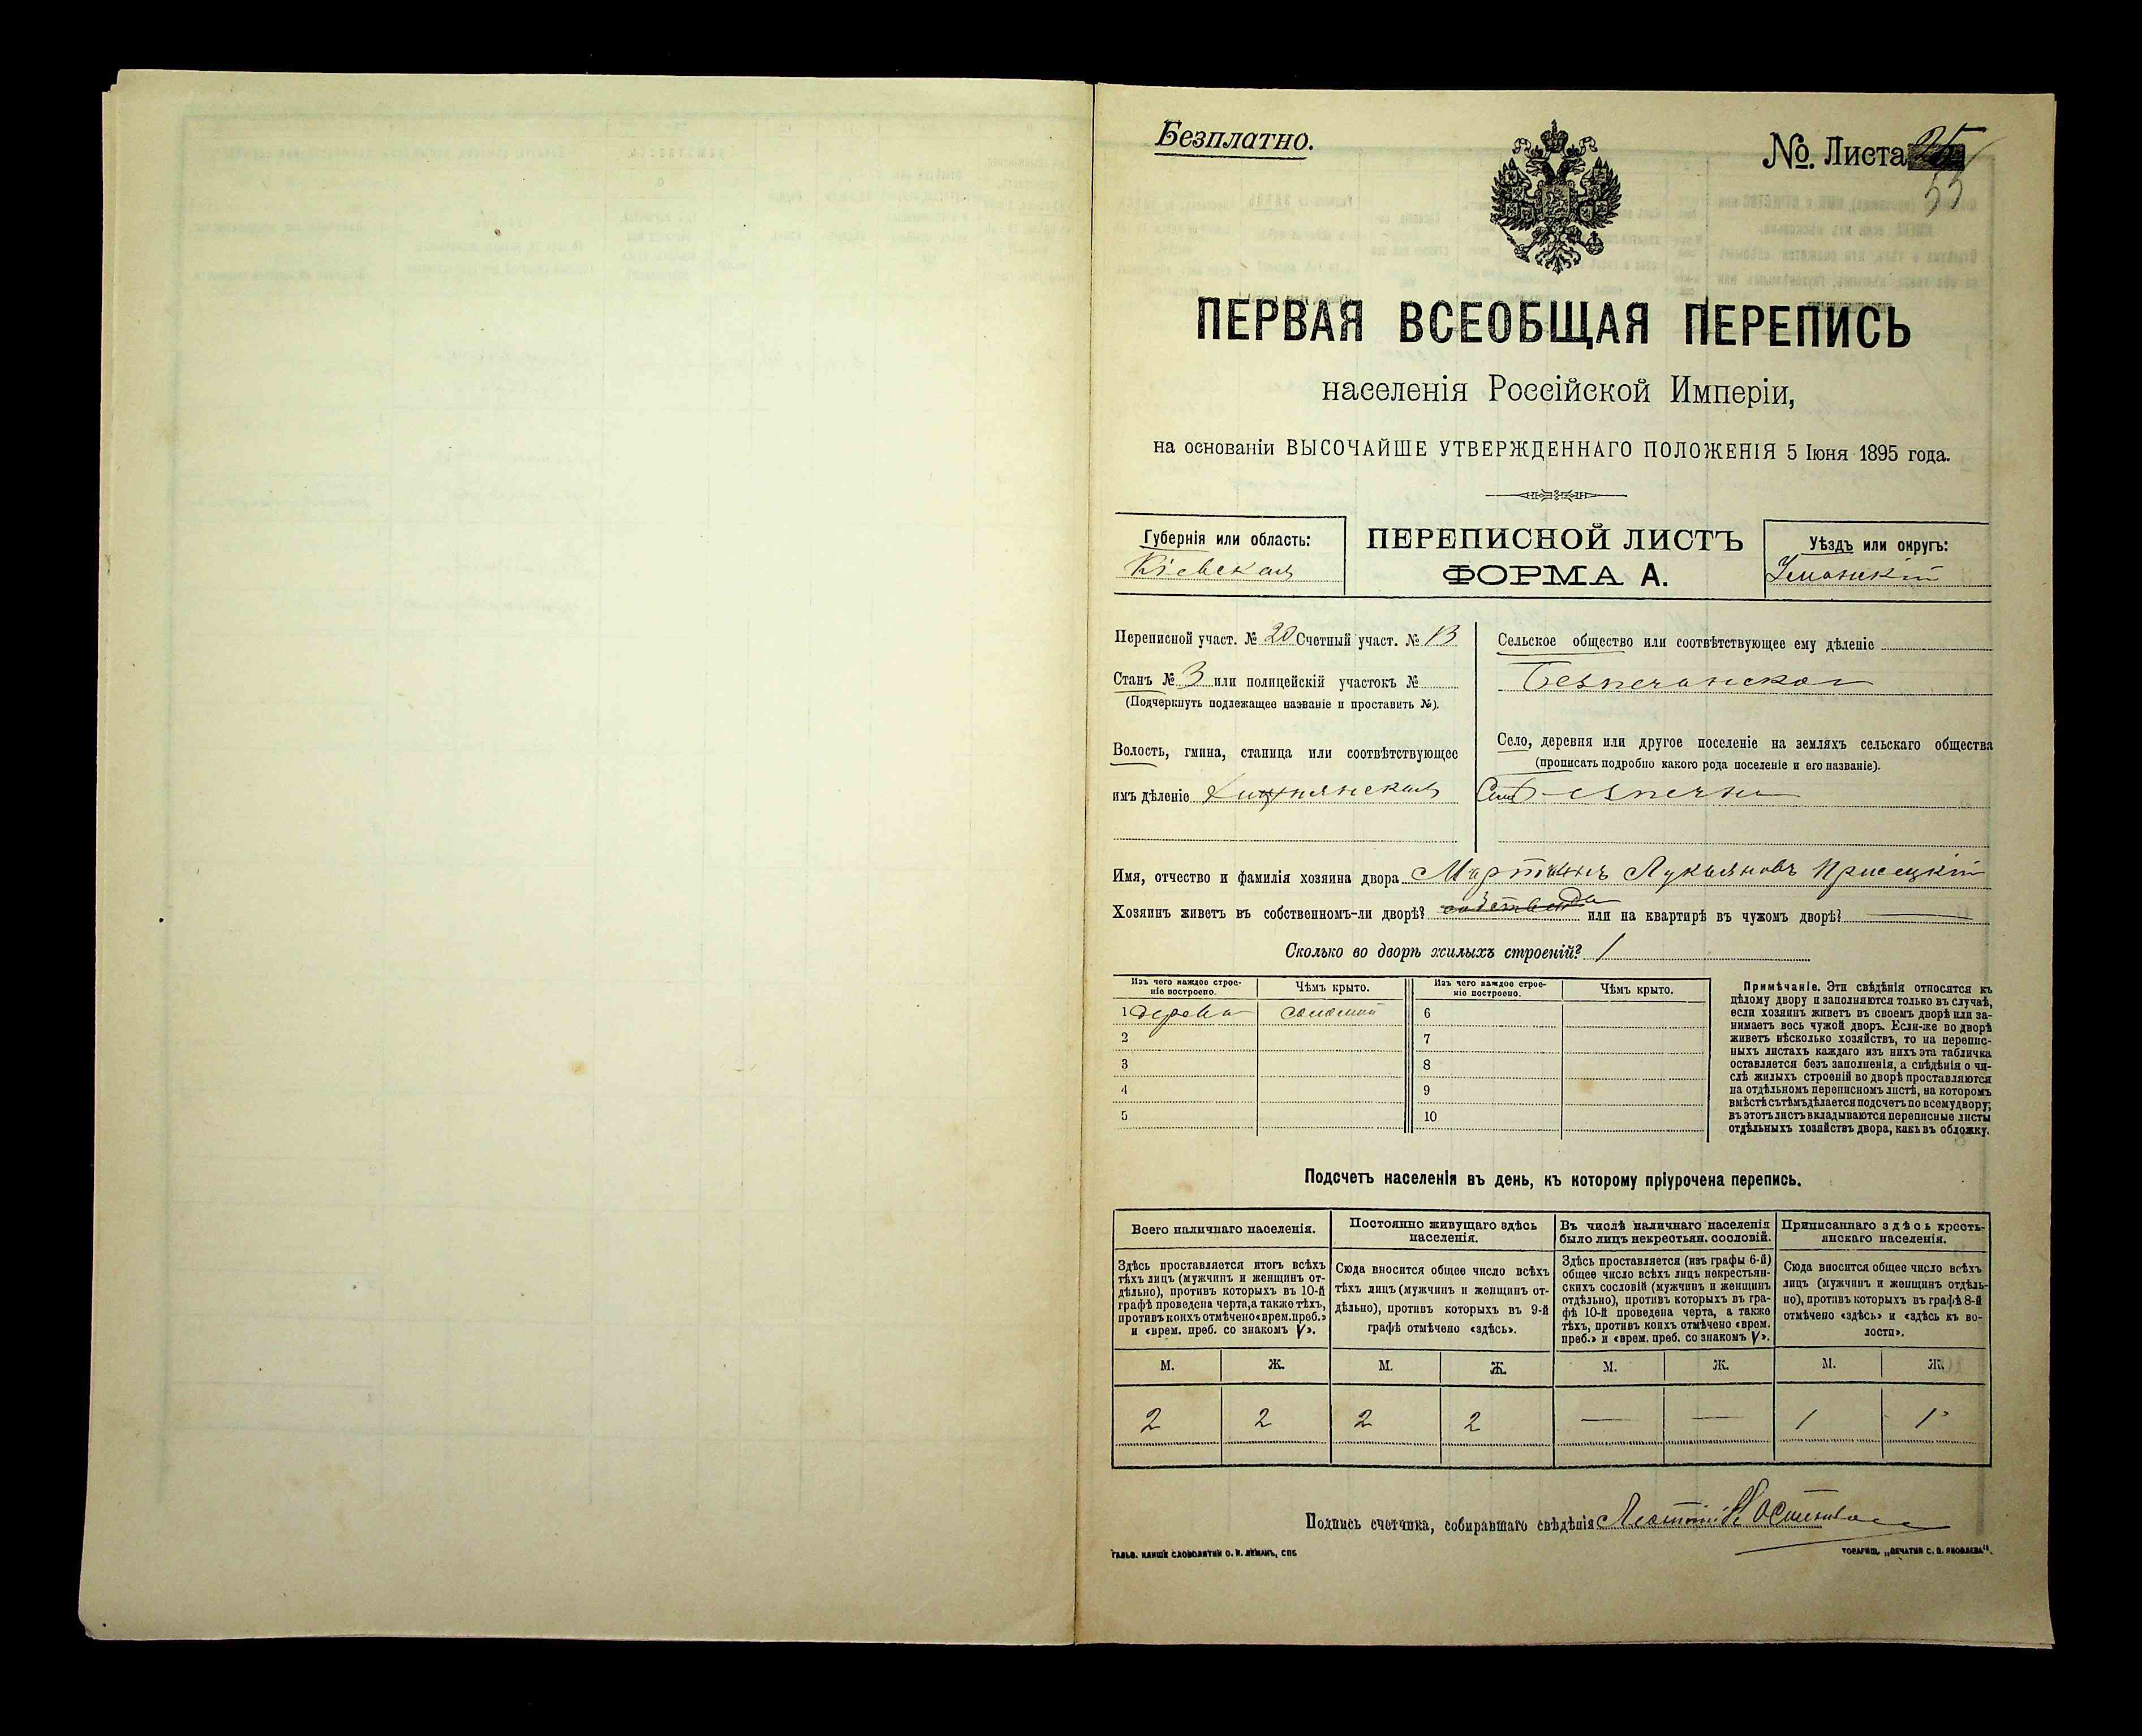 Безплатно.
№ Листа 25
53
ПЕРВАЯ ВСЕОБЩАЯ ПЕРЕПИСЬ
населенія Россійской Имперіи,
на основаніи ВЫСОЧАЙШЕ УТВЕРЖДЕННАГО ПОЛОЖЕНІЯ 5 Іюня 1895 года.
Губернія или область:
Кіевская
ПЕРЕПИСНОЙ ЛИСТЪ
ФОРМА А.
Уѣздъ или округъ:
Уманскій
Переписной участ. № 20 Счетный участ. № 13
Станъ № 3 или полицейскій участокъ №
(Подчеркнуть подлежащее названіе и проставить №).
Волость, гмина, станица или соотвѣтствующее
имъ дѣленіе
Сельское общество или соотвѣтствующее ему дѣленіе
Безпечанское
Село, деревня или другое поселеніе на земляхъ сельскаго общества
(прописать подробно какого рода поселеніе и его названіе).
Имя, отчество и фамилія хозяина двора Мартынъ Лукьяновъ Присецкій
Хозяинъ живетъ въ собственномъ-ли дворѣ? да или на квартирѣ въ чужомъ дворѣ?
Сколько во дворѣ жилыхъ строеній? 1
Изъ чего каждое строе-
ніе построено.
Чѣмъ крыто.
Изъ чего каждое строе-
ніе построено.
Чѣмъ крыто.
1 дерева соломой 6
2 7
3 8
4 9
5 10
Примѣчаніе. Эти свѣдѣнія относятся къ
цѣлому двору и заполняются только въ случаѣ,
если хозяинъ живетъ въ своемъ дворѣ или за-
нимаетъ весь чужой дворъ. Если-же во дворѣ
живетъ нѣсколько хозяйствъ, то на перепис-
ныхъ листахъ каждаго изъ нихъ эта табличка
оставляется безъ заполненія, а свѣдѣнія о чи-
слѣ жилыхъ строеній во дворѣ проставляются
на отдѣльномъ переписномъ листѣ, на которомъ
вмѣстѣ съ тѣмъ дѣлается подсчетъ по всему двору;
въ этотъ листъ вкладываются переписные листы
отдѣльныхъ хозяйствъ двора, какъ въ обложку.
Подсчетъ населенія въ день, къ которому пріурочена перепись.
Всего наличнаго населенія.
Здѣсь проставляется итогъ всѣхъ
тѣхъ лицъ (мужчинъ и женщинъ от-
дѣльно), противъ которыхъ въ 10-й
графѣ проведена черта, а также тѣхъ,
противъ коихъ отмѣчено «врем. преб.»
и «врем. преб. со знакомъ V».
Постоянно живущаго здѣсь
населенія.
Сюда вносится общее число всѣхъ
тѣхъ лицъ (мужчинъ и женщинъ от-
дѣльно), противъ которыхъ въ 9-й
графѣ отмѣчено «здѣсь».
Въ числѣ наличнаго населенія
было лицъ некрестьян. сословій.
Здѣсь проставляется (изъ графы 6-й)
общее число всѣхъ лицъ некрестьян-
скихъ сословій (мужчинъ и женщинъ
отдѣльно), противъ которыхъ въ гра-
фѣ 10-й проведена черта, а также
тѣхъ, противъ коихъ отмѣчено «врем.
преб.» и «врем. преб. со знакомъ V».
Приписаннаго здѣсь кресть-
янскаго населенія.
Сюда вносится общее число всѣхъ
лицъ (мужчинъ и женщинъ отдѣль-
но), противъ которыхъ въ графѣ 8-й
отмѣчено «здѣсь» и «здѣсь къ во-
лости».
М. Ж. М. Ж. М. Ж. М. Ж.
2 2 2 2 — — 1 1
Подпись счетчика, собиравшаго свѣдѣнія
ГАЛЬВ. КЛИШЕ СЛОВОЛИТНИ О. И. ЛЕМАНЪ, СПБ.
ТОВАРИЩ. „ПЕЧАТНЯ С. П. ЯКОВЛЕВА".